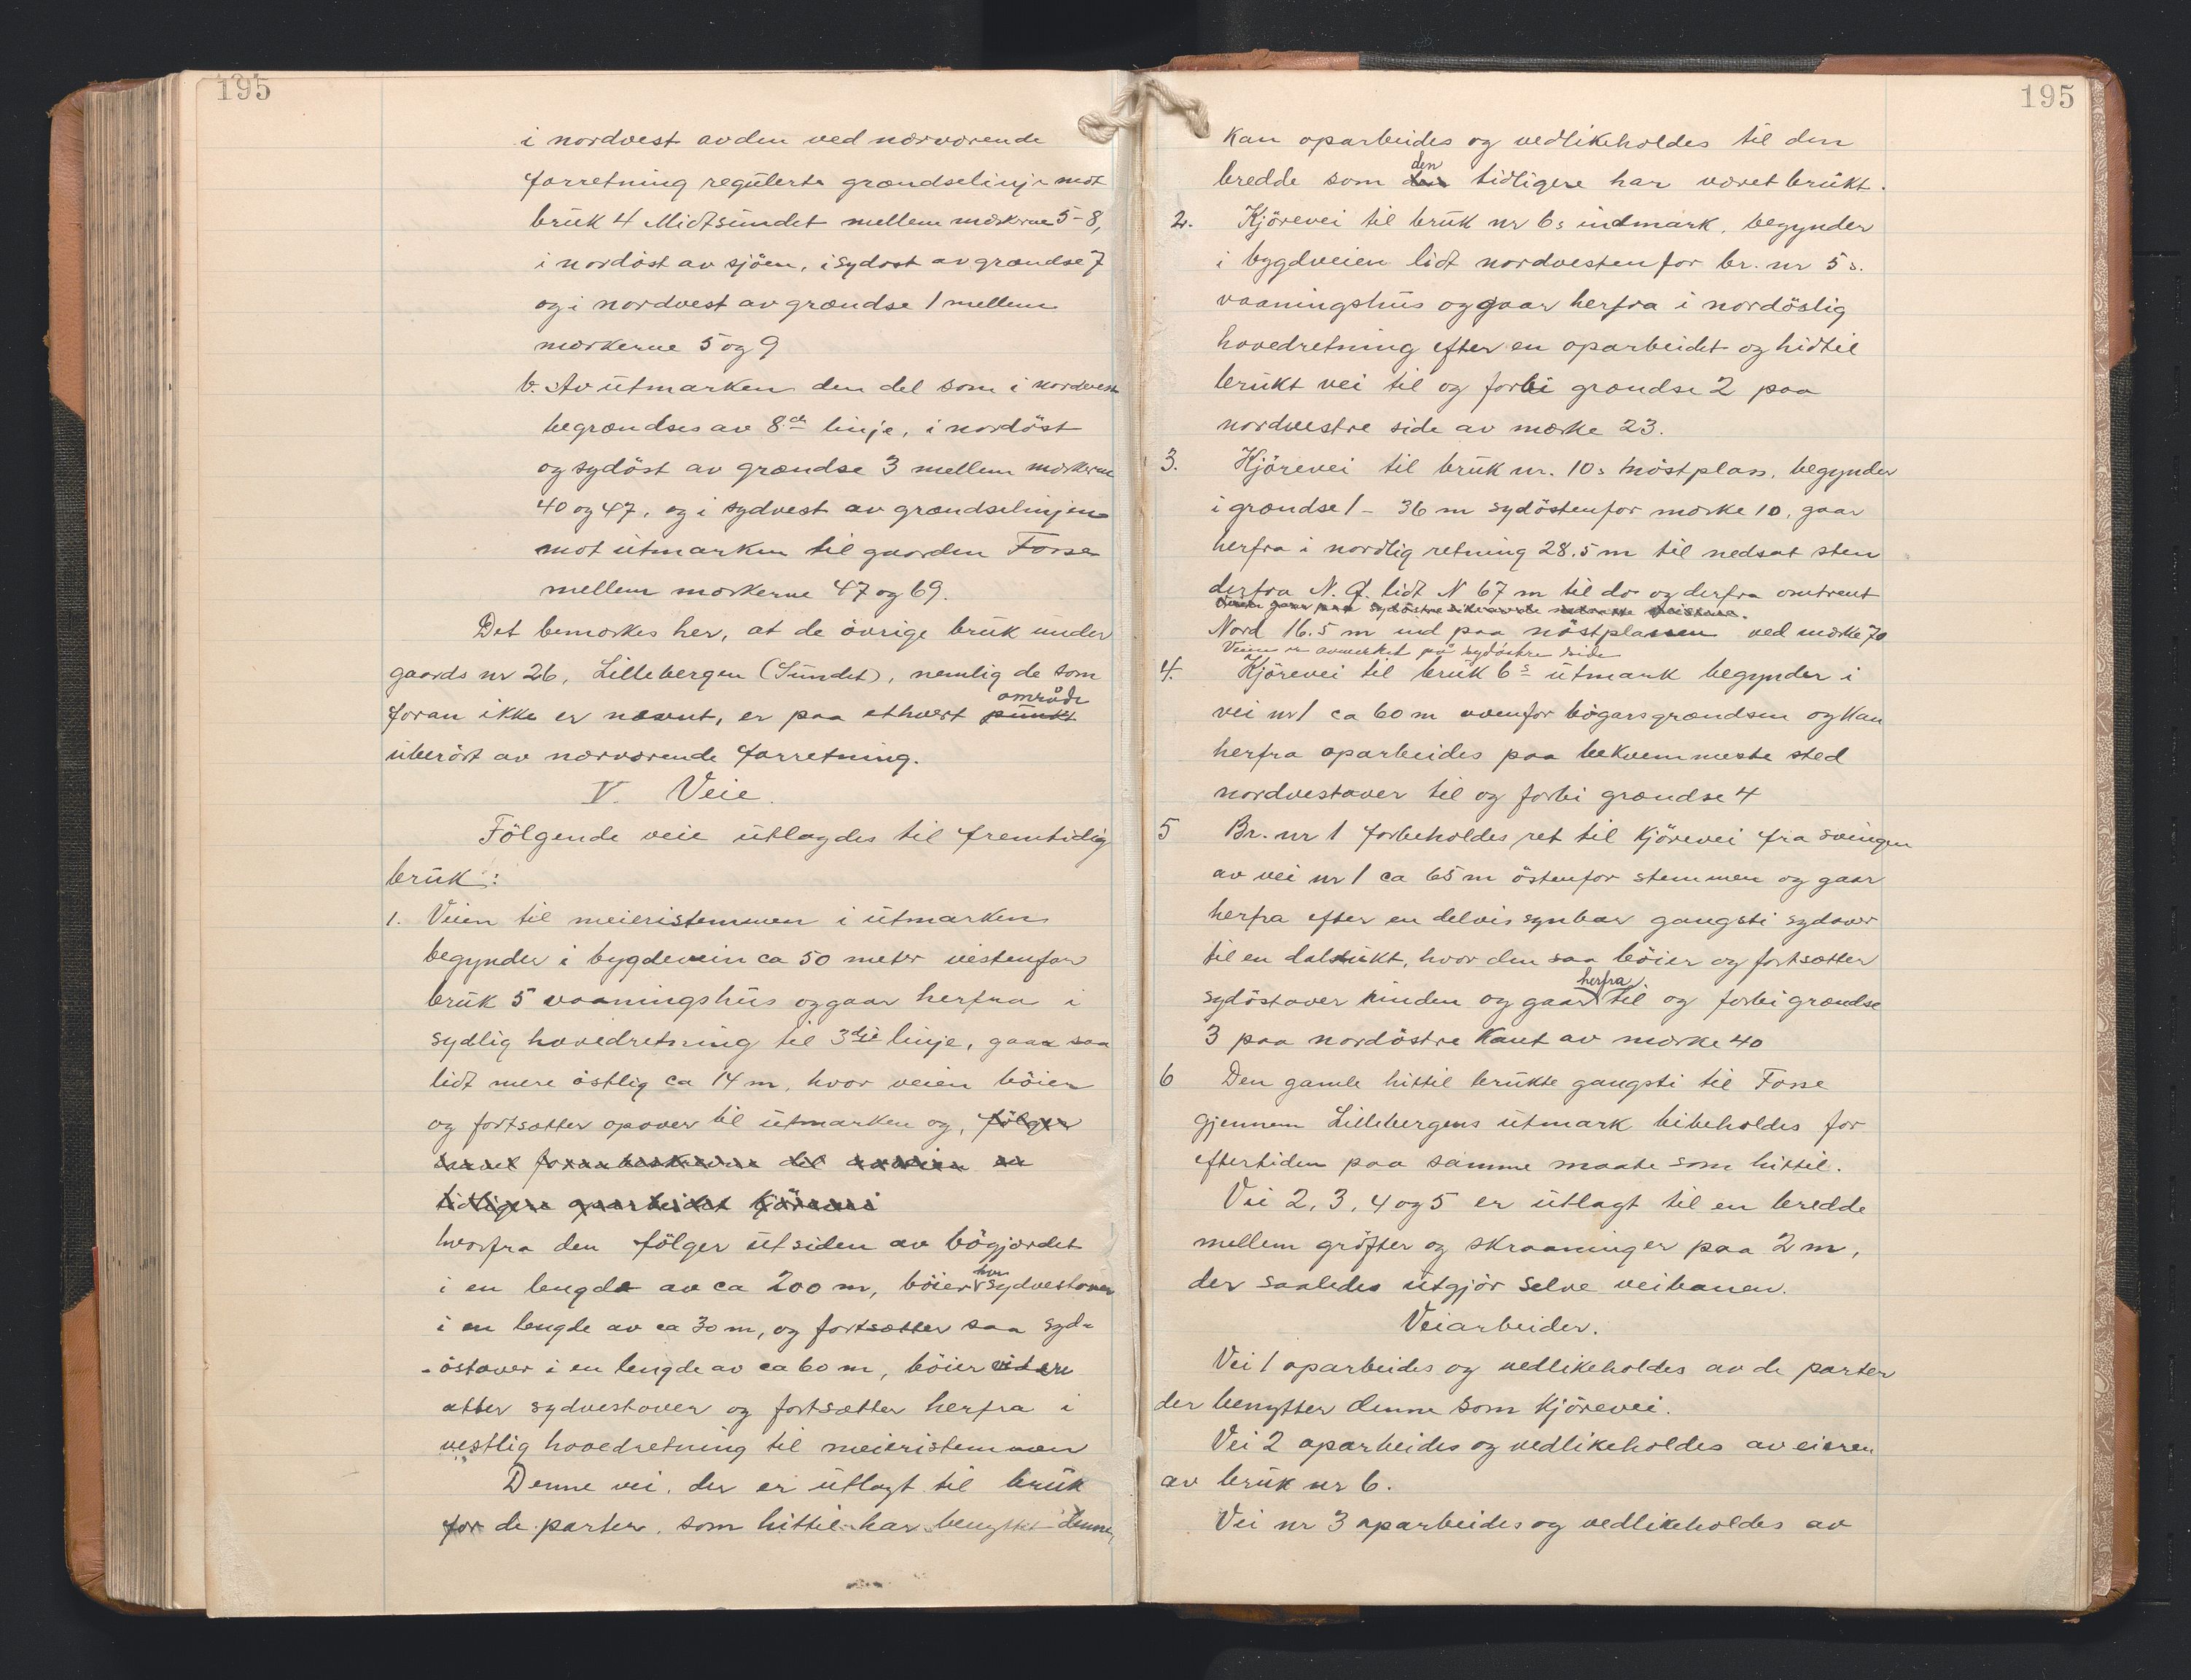 195
i nordvest avden ved nærværende
forretning regulerte grændselinje mot
bruk 4 Midtsundet mellem mærkerne 5-8,
i nordöst av sjöen, i sydöst av grændse 7
og i nordvest av grændse 1 mellem
mærkerne 5 og 9
b. Av utmarken den del som i nordvest
begrændses av 8de linje, i nordöst
og sydöst av grændse 3 mellem mærkerne
40 og 47, og i sydvest av grændselinjen
mot utmarken til gaarden Fosse
mellem mærkerne 47 og 69.
Det bemærkes her, at de övrige bruk under
gaards nr 26, Lillebergen (Sundet), nemlig de som
område
foran ikke er nævnt, er paa ethvert punkt
uberört av nærværende forretning.
V. Veie.
Fölgende veie utlagdes til fremtidig
bruk:
1. Veien til meieristemmen i utmarken
begynder i bygdeveien ca 50 meter vestenfor
bruk 5 vaaningshus og gaar herfra i
sydlig hovedretning til 3die linje, gaar saa
lidt mere östlig ca 14 m, hvor veien böier
og fortsætter opover til utmarken og, fölger
foranbeskrevne del av veien en
tidligere oparbeidet kjörevei
hvorfra den fölger utsiden av bögjærdet
her
i en lengde av ca 200 m, böier sydvestover
i en lengde av ca 30 m, og fortsætter saa syd-
-östover i en lengde av ca 60 m, böier videre
atter sydvestover og fortsætter herfra i
vestlig hovedretning til meieristemmen
Denne vei, der er utlagt til bruk
for de parter, som hittil har benyttet denne,
195
kan oparbeides og vedlikeholdes til den
den
bredde som tidligere har været brukt.
2. Kjörevei til bruk nr 6s indmark, begynder
i bygdveien lidt nordvestenfor br. nr 5s.
vaaningshus og gaar herfra i nordöslig
hovedretning efter en oparbeidet og hidtil
brukt vei til og forbi grændse 2 paa
nordvestre side av mærke 23.
3. Kjörevei til bruk nr. 10s nöstplass, begynder
i grændse 1 - 36 m sydöstenfor mærke 10, gaar
herfra i nordlig retning 28,5 m til nedsat sten
derfra N. Ø. lidt N 67 m til do og derfra omtrent
Veien gaar paa sydöstre side av de nedsatte
Nord 16.5 m ind paa nöstplassen ved mærke 70
Veien er avmerket på sydöstre side
4. Kjörevei til bruk 6s utmark begynder i
vei nr 1 ca 60 m ovenfor bögarsgrændsen og kan
herfra oparbeides paa bekvemmeste sted
nordvestover til og forbi grændse 4
5 Br. nr 1 forbeholdes ret til kjörevei fra svingen
av vei nr 1 ca 65 m östenfor stemmen og gaar
herfra efter en delvis synbar gangsti sydover
til en dalsukt, hvor den saa böier og fortsætter
herfra
sydöstover rinden og gaar til og forbi grændse
3 paa nordöstre kant av mærke 40
6 Den gamle hittil brukte gangsti til Fosse
gjennem Lillebergens utmark bibeholdes for
eftertiden paa samme maate som hittil.
Vei 2, 3, 4 og 5 er utlagt til en bredde
mellem gröfter og skraaninger paa 2 m,
der saaledes utgjör selve veibanen.
Veiarbeider.
Vei 1 oparbeides og vedlikeholdes av de parter
der benytter denne som kjörevei.
Vei 2 oparbeides og vedlikeholdes av eieren
av bruk nr 6.
Vei nr 3 oparbeides og vedlikeholdes av